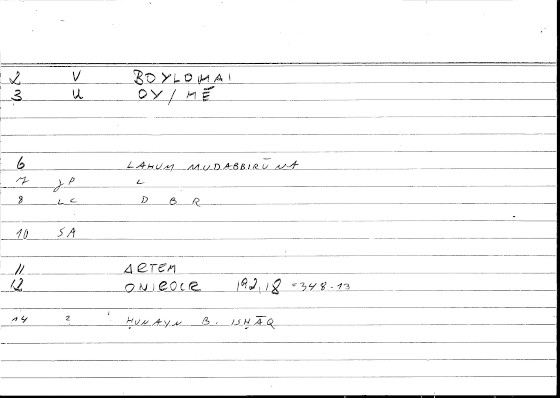 2 V BOYLOMAI
3 U OY/MĒ
6 LAHUM MUDABBIRŪNA
7 JP L
8 LC D B R
10 SA
11 ARTEM
12 ONIROCR 192,18 = 348.13
14 2 ḤUNAYN B. ISḤĀQ